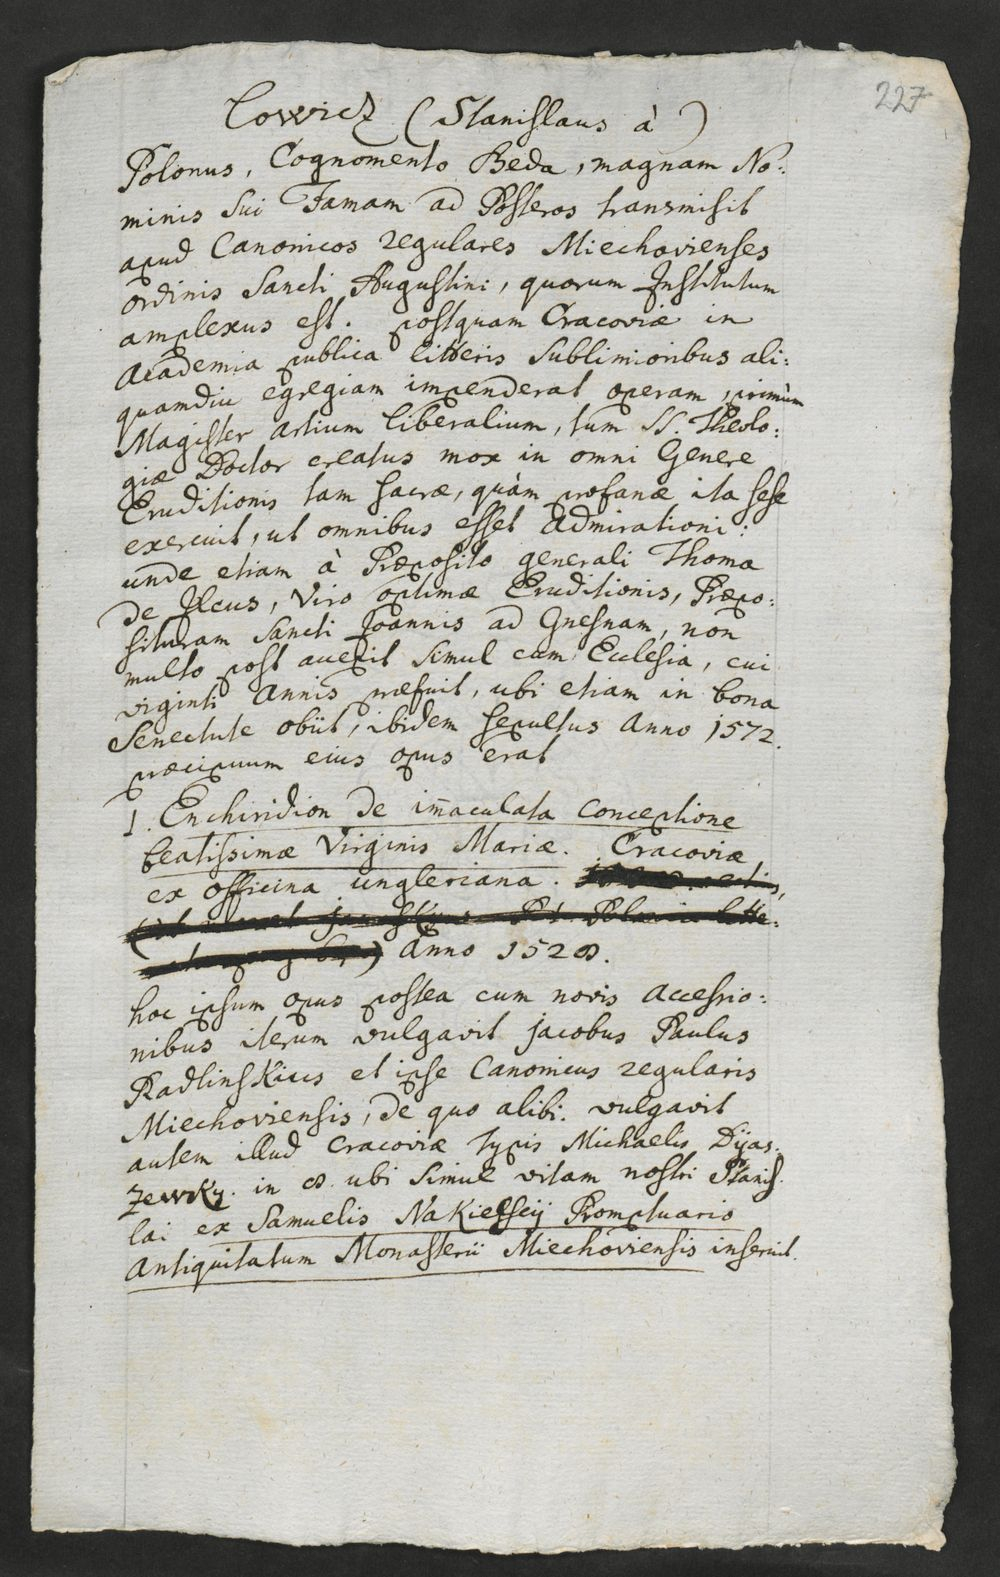 227
Lowicz (Stanislaus à)
Polonus, Cognomento Beda, magnam No:
minis sui Famam ad Posteros transmisit
apud Canonicos regulares Miechovienses
ordinis Sancti Augustini, quorum Institutum
amplexus est. postquam Cracoviæ in
Academia publica litteris sublimioribus ali:
quamdiu egregiam impenderat operam, primùm
Magister artium liberalium, tum SS. Theolo:
giæ Doctor creatus mox in omni Genere
Eruditionis tam sacræ, quàm profanæ ita sese
exercuit, ut omnibus esset admirationi:
unde etiam à Præposito generali Thoma
de Ilcus, viro optimæ Eruditionis, Præpo:
situram Sancti Joannis ad Gnesnam, non
multo post accepit simul cum Ecclesia, cui
viginti Annis præfuit, ubi etiam in bona
Senectute obiit, ibidem sepultus Anno 1572.
præcipuum eius opus erat
1. Enchiridion de im̄aculata conceptione
beatissimæ Virginis Mariæ. Cracoviæ
ex officina ungleriana.
Anno 1528.
hoc ipsum opus postea cum novis accessio:
nibus iterum vulgavit jacobus Paulus
Radlinskius et ipse Canonicus regularis
Miechoviensis, de quo alibi. vulgavit
autem illud Cracoviæ typis Michaelis Dijas
zewsky. in 8. ubi simul vitam nostri Stanis
lai ex Samuelis Nakielscij Promptuario
Antiquitatum Monasterii Miechoviensis inseruit.